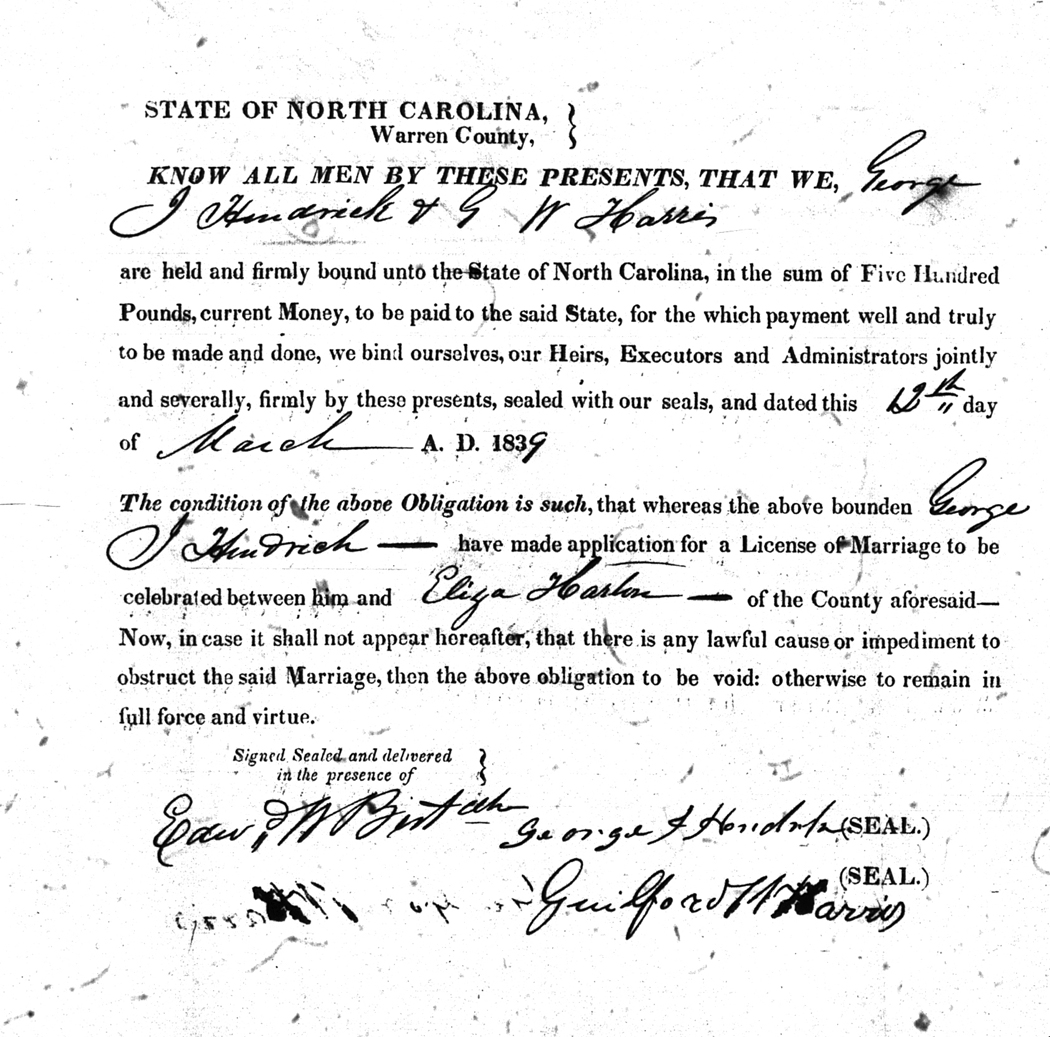 STATE OF NORTH CAROLINA, }
Warren County,
KNOW ALL MEN BY THESE PRESENTS, THAT WE, George
J Hendrick & G W Harris
are held and firmly bound unto the State of North Carolina, in the sum of Five Hundred
Pounds, current Money, to be paid to the said State, for the which payment well and truly
to be made and done, we bind ourselves, our Heirs, Executors and Administrators jointly
and severally, firmly by these presents, sealed with our seals, and dated this 12th day
of March A. D. 1839
The condition of the above Obligation is such, that whereas the above bounden George
J Hendrick — have made application for a License of Marriage to be
celebrated between him and Eliza — of the County aforesaid—
Now, in case it shall not appear hereafter, that there is any lawful cause or impediment to
obstruct the said Marriage, then the above obligation to be void: otherwise to remain in
full force and virtue.
Signed Sealed and delivered }
in the presence of
Edwd W Best George J (SEAL.)
(SEAL.)
Guilford W Harris